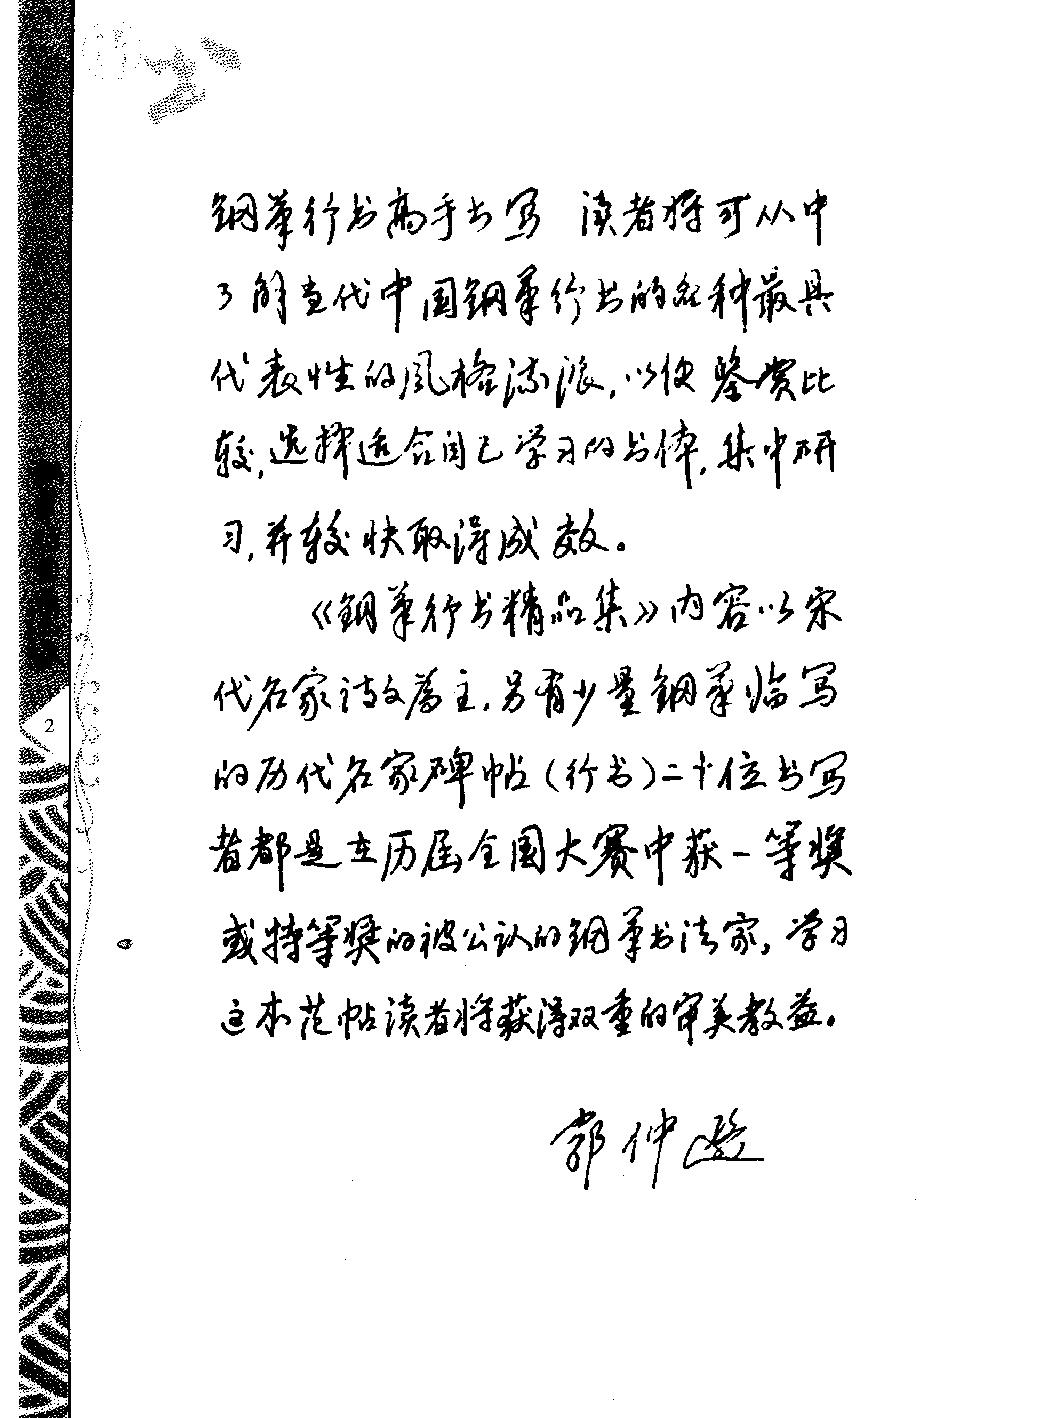 钢笔行书高手书写 读者将可从中
了解当代中国钢笔行书的各种最具
代表性的风格流派,以便鉴赏比
较,选择适合自己学习的书体,集中研
习,并较快取得成效。
《钢笔行书精品集》内容以宋
代名家诗文为主,另有少量钢笔临写
的历代名家碑帖(行书)二十位书写
者都是在历届全国大赛中获一等奖
或特等奖的被公认的钢笔书法家,学习
这本范帖读者将获得双重的审美教益。
郭仲
2